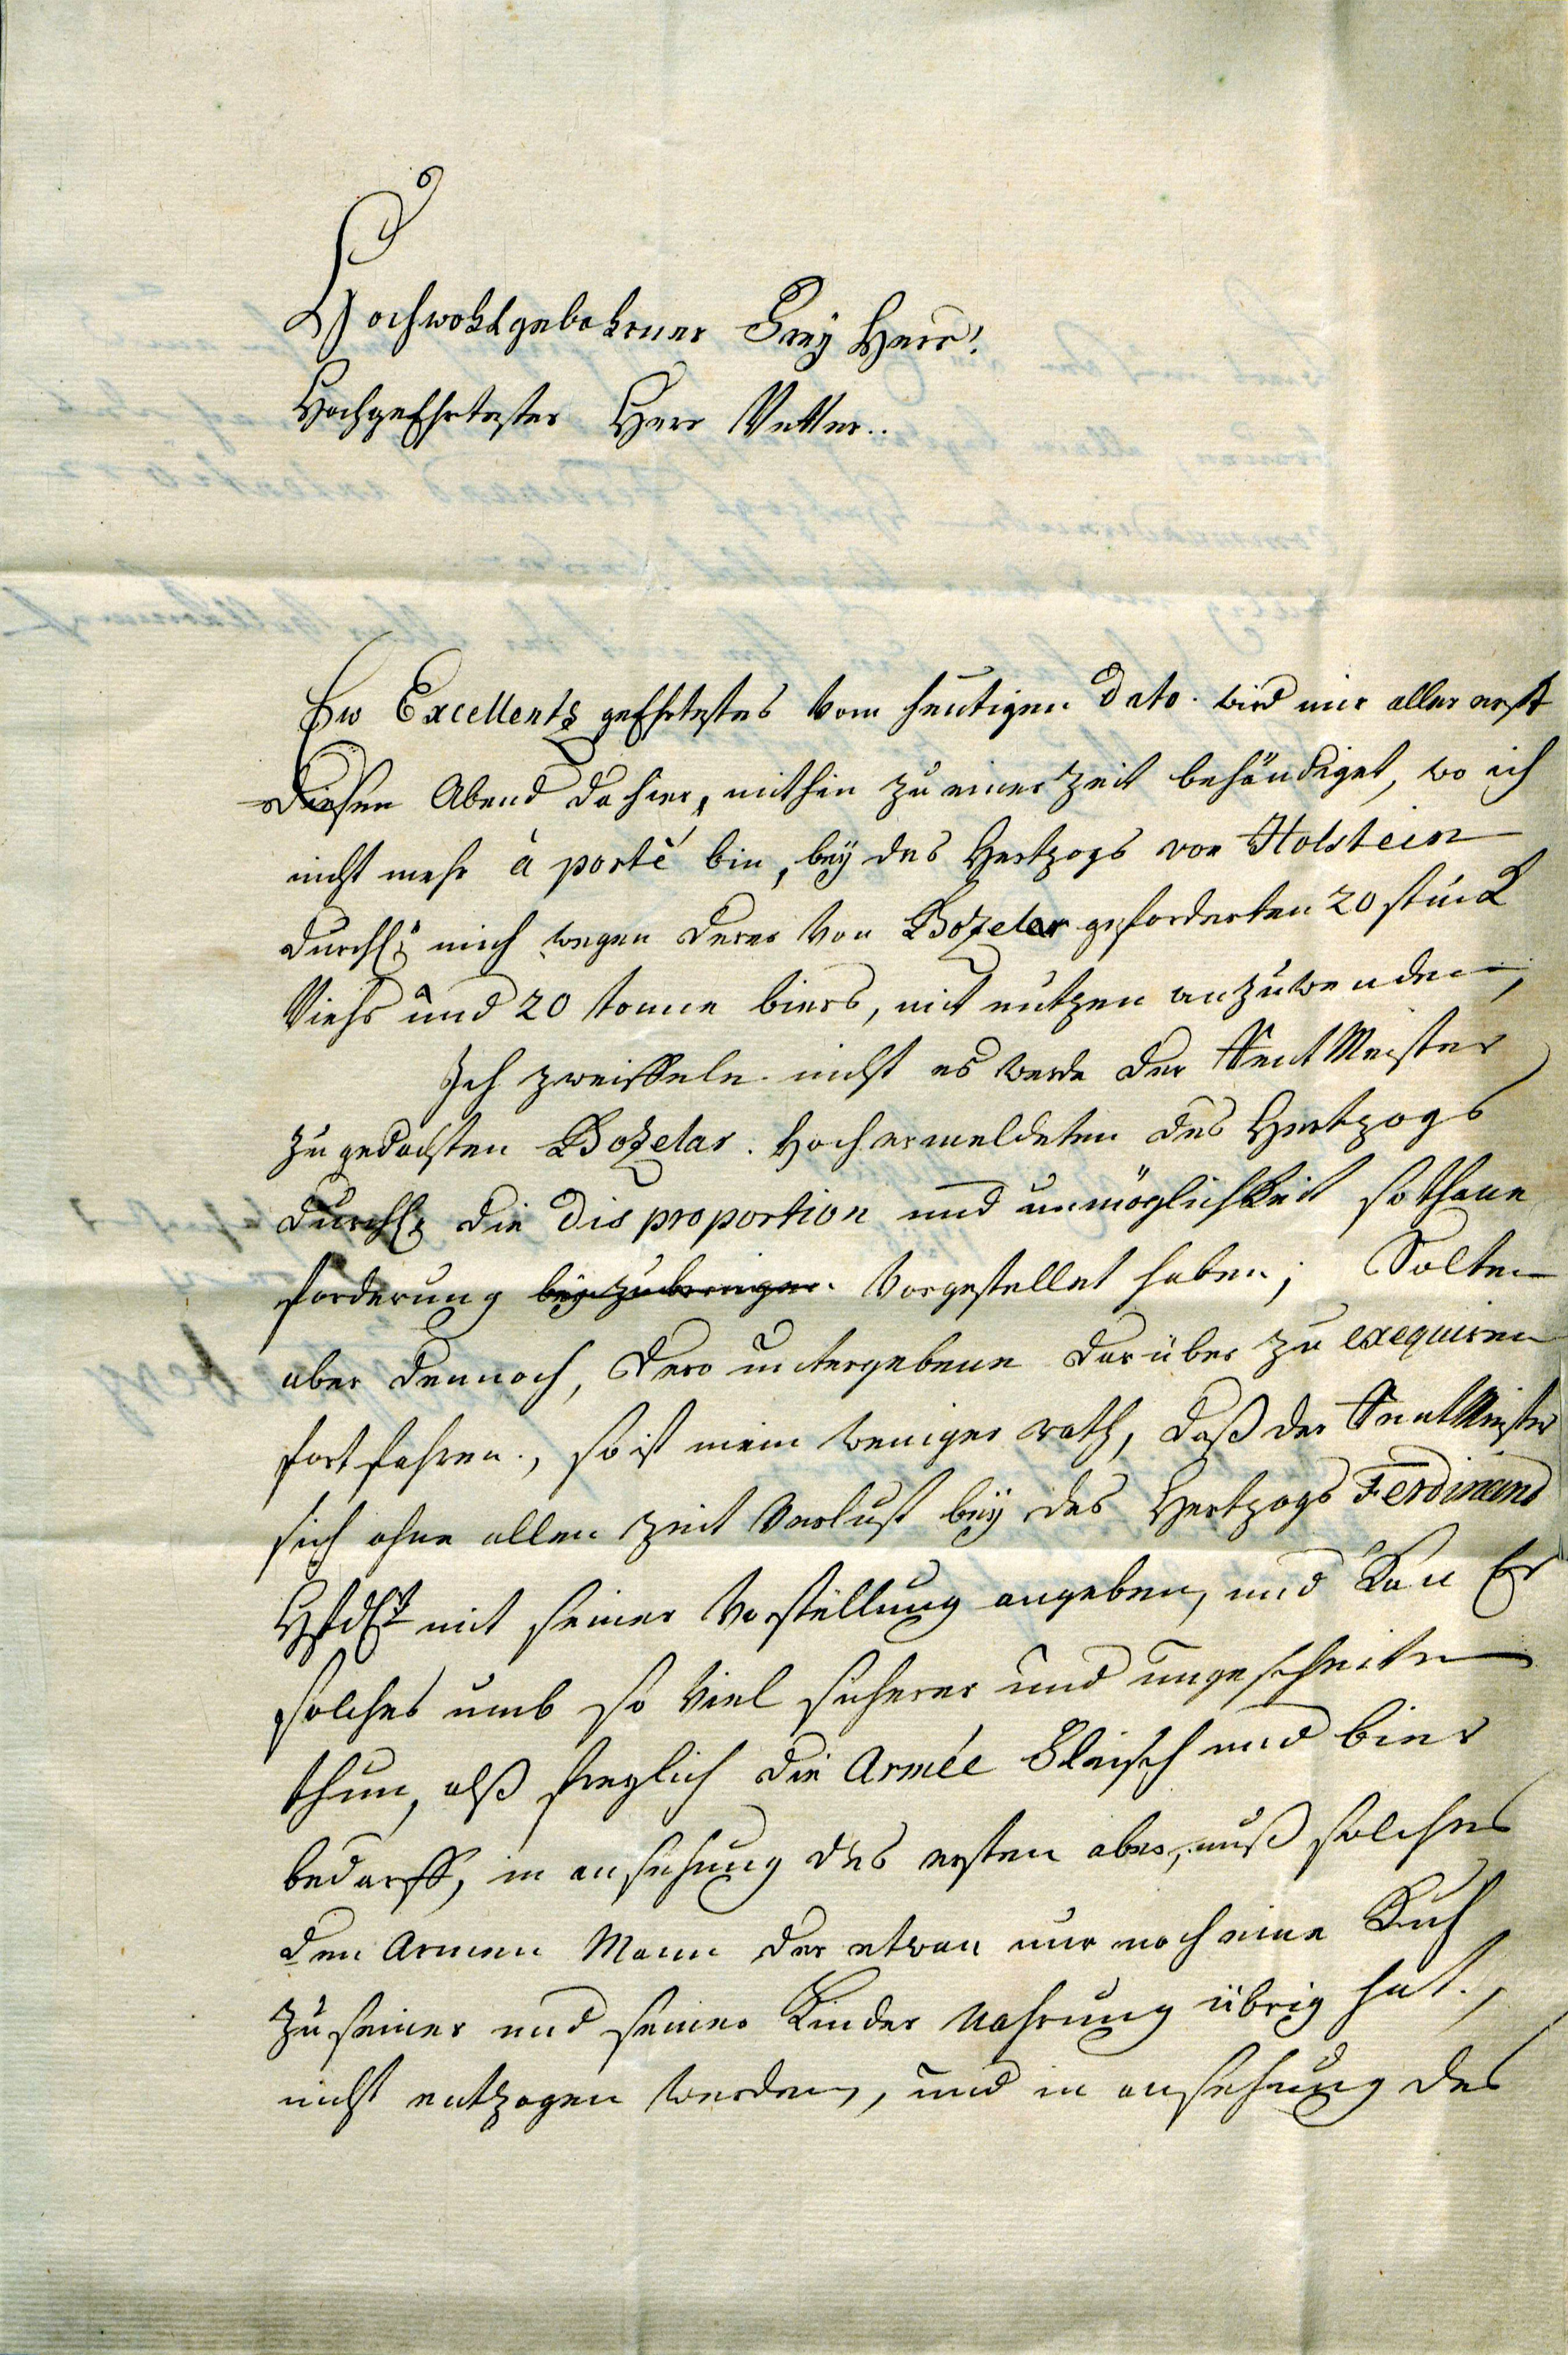 Hochwohlgebohrner Frey Herr!
Hochgeehrtester Herr Vetter..
Ew Excellentz geehrtestes vom heutigen dato wird mir aller erst
diesen Abend dahier, mithin zu einer Zeit behändiget, wo ich
nicht mehr à porté bin, bey des Hertzogs von Holstein
Durchl. mich wegen derer von Bozelar geforderten 20 stück
Viehs und 20 tonne biers, mit nutzen anzuwenden,
Ich zweiffele nicht es werde der RentMeister
zu gedachten Bozelar hochermeldeten des Hertzogs
Durchl. die disproportion und unmöglichkeit sothane
forderung beyzubringen vorgestellet haben; Solten
aber dennoch, dero untergebene darüber zu exequiren
fortfahren, so ist mein weniger rath, daß der RentMeister
sich ohne allen Zeit Verlust bey des Hertzogs Ferdinand
mit seiner Vorstellung angeben, und kan Er
solches umb so viel sicherer und ungescheüter
thun, alß freylich die Armée Fleisch und bier
bedarff, in ansehung des ersten aber, muß solches
den Armen Mann der etwan nur noch eine Kuh
zu seiner und seiner Kinder Nahrung übrig hat,
nicht entzogen werden, und in ansehung des